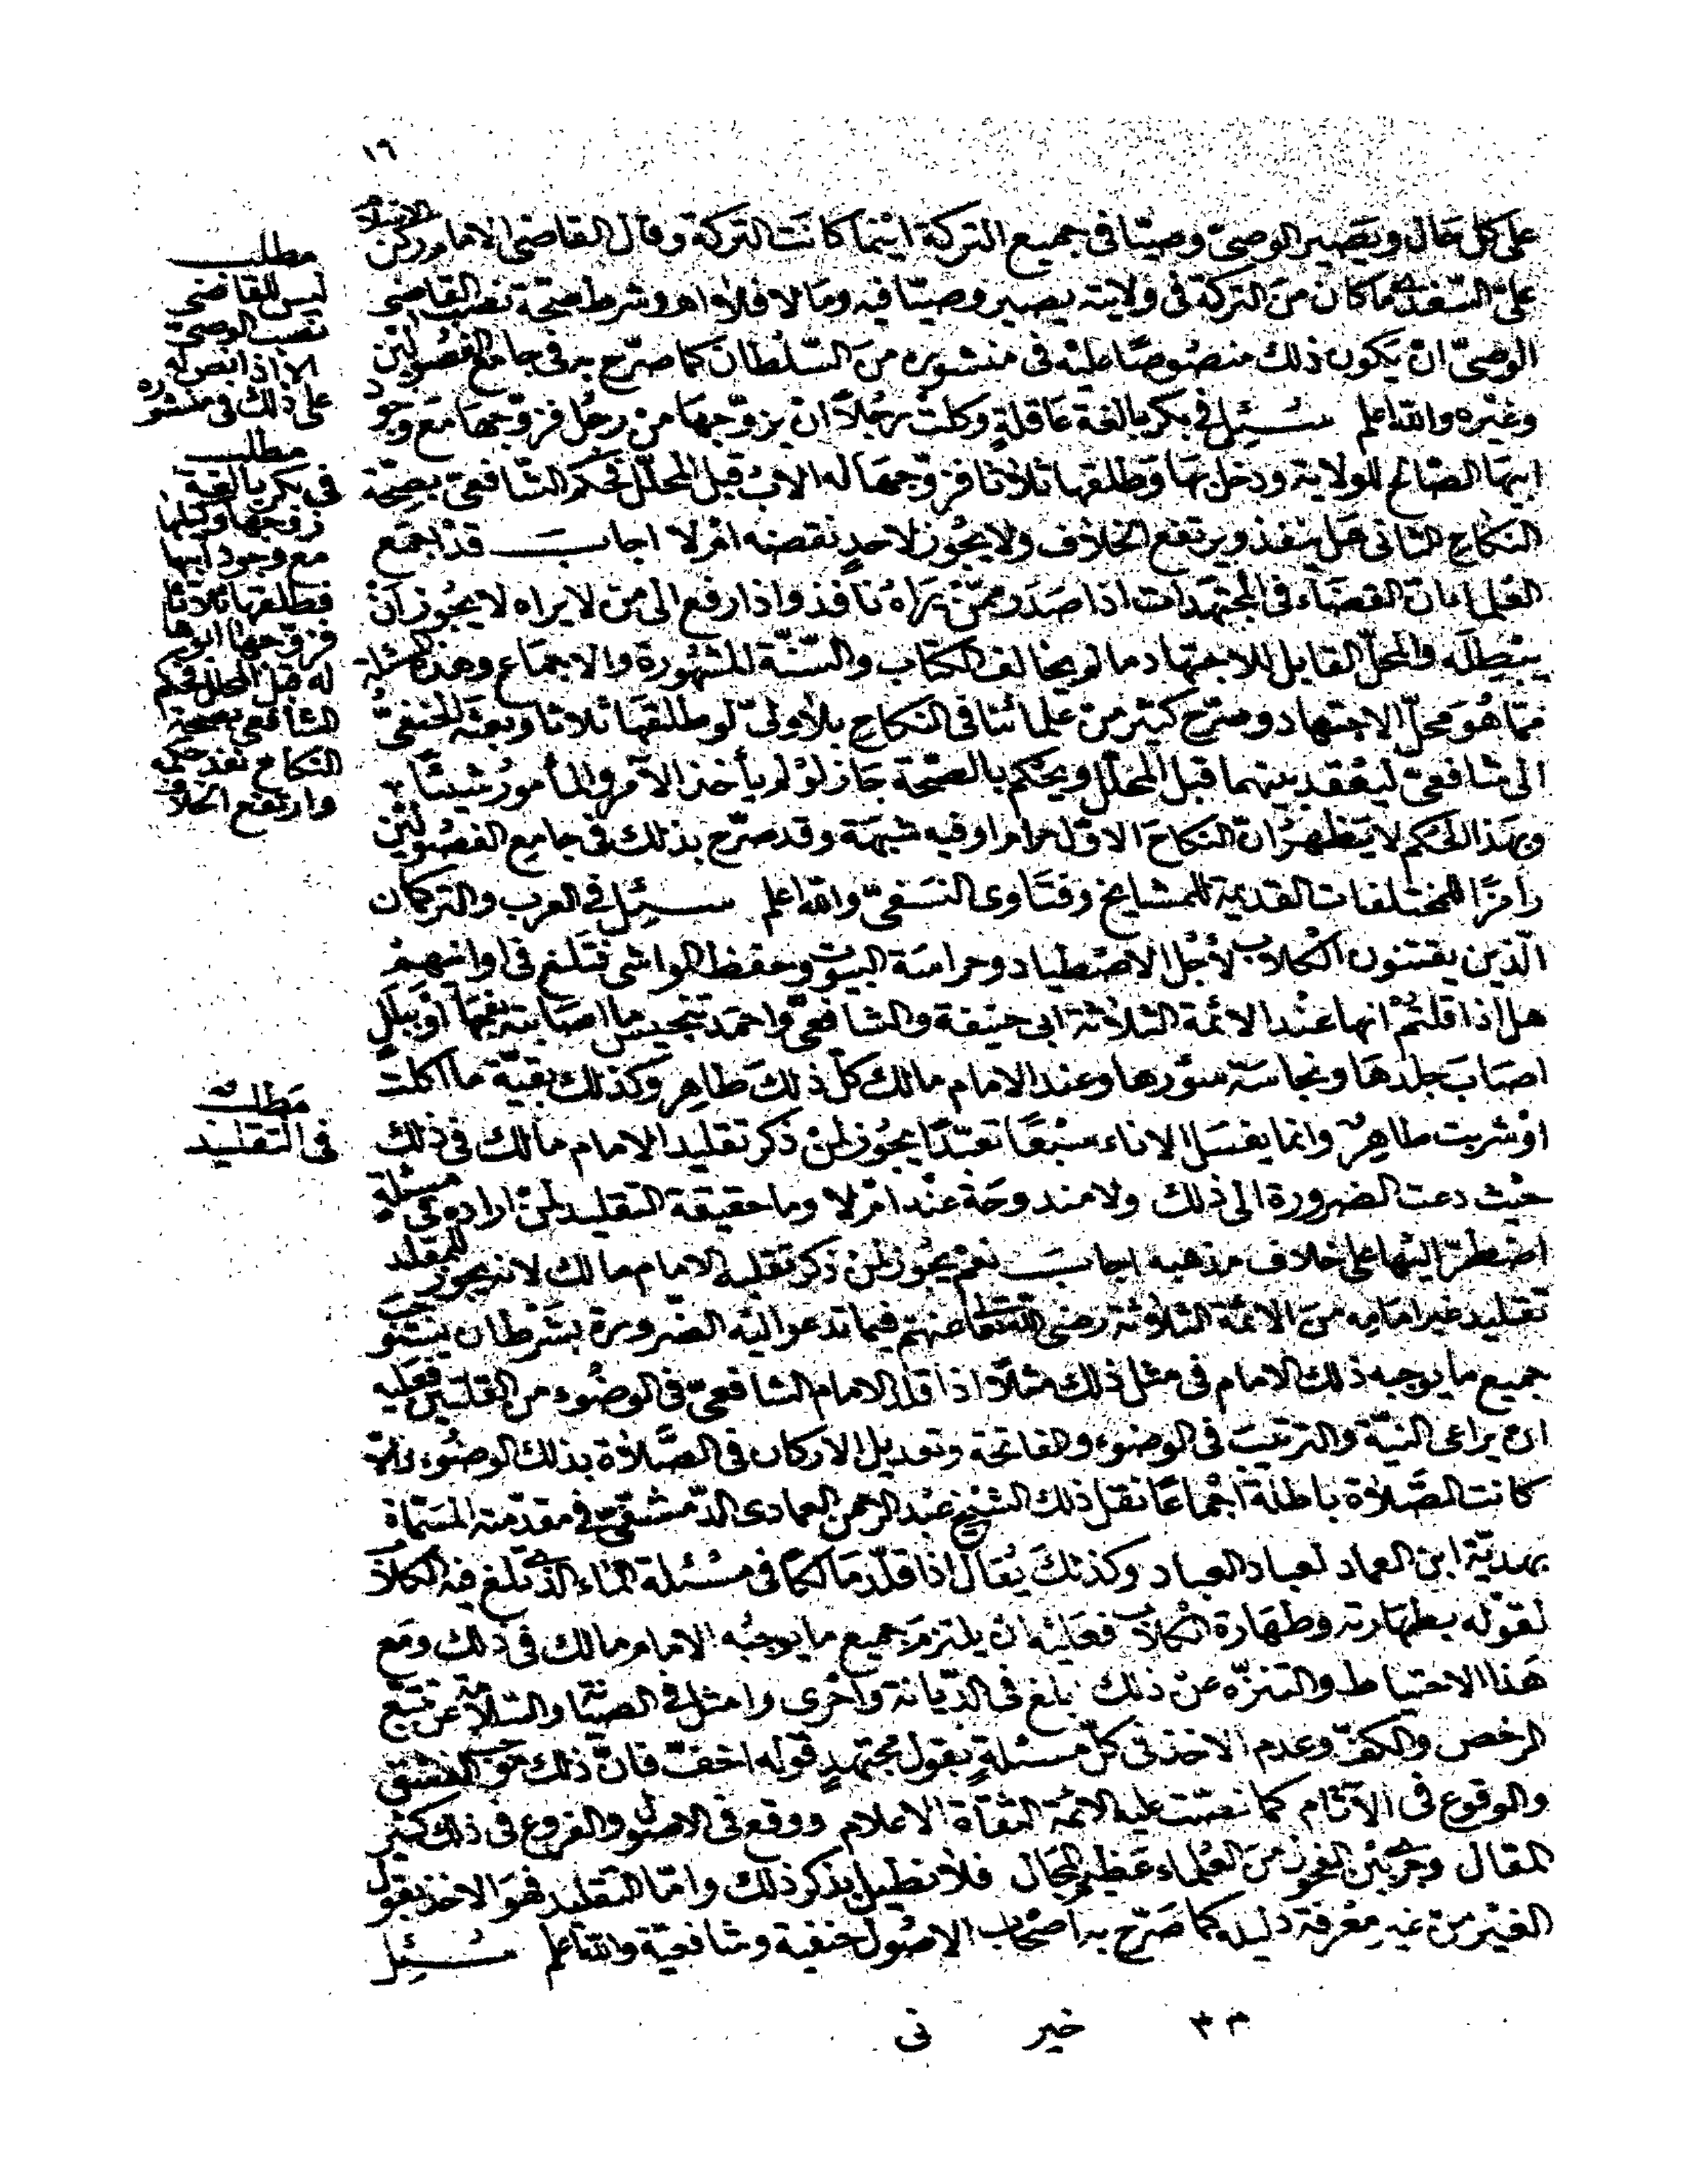 ١٦
على كل حال ويصير الوصي وصيا في جميع التركة اينما كانت التركة وقال القاضي الامام ركن الاسلام
علي السغدي ما كان من التركة في ولايته يصير وصيا فيه وما لا فلا اهـ وشرط صحة نصب القاضي
الوصي ان يكون ذلك منصوصا عليه في منشوره من السلطان كما صرح به في جامع الفصولين
وغيره والله اعلم سئل في بكر بالغة عاقلة وكلت رجلا ان يزوجها من رجل فزوجها مع وجود
ابيها الصالح للولاية ودخل بها وطلقها ثلاثا فزوجها له الاب قبل المحلل فحكم الشافعي بصحة
النكاح الثاني هل ينفذ ويرتفع الخلاف ولا يجوز لاحد نقضه ام لا اجاب قد اجمع
العلماء ان القضاء في المجتهدات اذا صدر ممن يراه نافذ واذا رفع الى من لا يراه لا يجوز ان
يبطله والمحل القابل للاجتهاد ما لم يخالف الكتاب والسنة المشهورة والاجماع وهذه المسئلة
مما هو محل الاجتهاد وصرح كثير من علمائنا في النكاح بلا ولي لو طلقها ثلاثا وبعثه الحنفي
الى شافعي ليعقد بينهما قبل المحلل ويحكم بالصحة جاز لو لم يأخذ الآمر والمأمور شيئا
وبهذا الحكم لا يظهر ان النكاح الاول حرام او فيه شبهة وقد صرح بذلك في جامع الفصولين
رامزا للمختلفات القديمة للمشايخ وفتاوى النسفي والله اعلم سئل في العرب والتركمان
الذين يقتنون الكلاب لأجل الاصطياد وحراسة البيوت وحفظ المواشي فتلغ في اوانيهم
هل اذا قلتم انها عند الائمة الثلاثة ابي حنيفة والشافعي واحمد بتنجيس ما اصابته بفمها او ببلل
اصاب جلدها ونجاسة سؤرها وعند الامام مالك كل ذلك طاهر وكذلك بقية ما اكلت
او شربت طاهر وانما يغسل الاناء سبعا تعبدا يجوز لمن ذكر تقليد الامام مالك في ذلك
حيث دعت الضرورة الى ذلك ولا مندوحة عنه ام لا وما حقيقة التقليد لمن اراده في مسئلة
اضطر اليها على خلاف مذهبه اجاب نعم يجوز لمن ذكر تقليد الامام مالك لانه يجوز للمقلد
تقليد غير امامه من الائمة الثلاثة رضي الله تعالى عنهم فيما تدعو اليه الضرورة بشرط ان يستوجب
جميع ما يوجبه ذلك الامام في مثل ذلك مثلا اذا قلد الامام الشافعي في الوضوء من القلتين فعليه
ان يراعي النية والترتيب في الوضوء والفاتحة وتعديل الاركان في الصلاة بذلك الوضوء والا
كانت الصلاة باطلة اجماعا نقل ذلك الشيخ عبد الرحمن العمادي الدمشقي في مقدمته المسماة
بهدية ابن العماد لعباد العباد وكذلك يقال اذا قلد مالكا في مسئلة الماء الذي تلغ فيه الكلاب
لقوله بطهارته وطهارة الكلاب فعليه ان يلتزم جميع ما يوجبه الامام مالك في ذلك ومع
هذا الاحتياط والتنزه عن ذلك ابلغ في الديانة واحرى وامثل في الصيانة والسلامة عن تتبع
الرخص والكف وعدم الاخذ في كل مسئلة بقول مجتهد قوله اخف فان ذلك هو الفسق
والوقوع في الآثام كما نصت عليه الائمة الثقاة الاعلام ووقع في الاصول والفروع في ذلك كثير
المقال وجرى بين الفحول من العلماء عظيم المجال فلا نطيل بذكر ذلك واما التقليد فهو الاخذ بقول
الغير من غير معرفة دليله كما صرح به اصحاب الاصول حنفية وشافعية والله اعلم سئل
مطلب
ليس للقاضي
نصب الوصي
الا اذا نص له
على ذلك في منشوره
مطلب
في بكر بالغة
زوجها وكيلها
مع وجود ابيها
فطلقها ثلاثا
فزوجها ابوها
له قبل المحلل فحكم
الشافعي بصحة
النكاح نفذ حكمه
وارتفع الخلاف
مطلب
في التقليد
٣٣ خير في